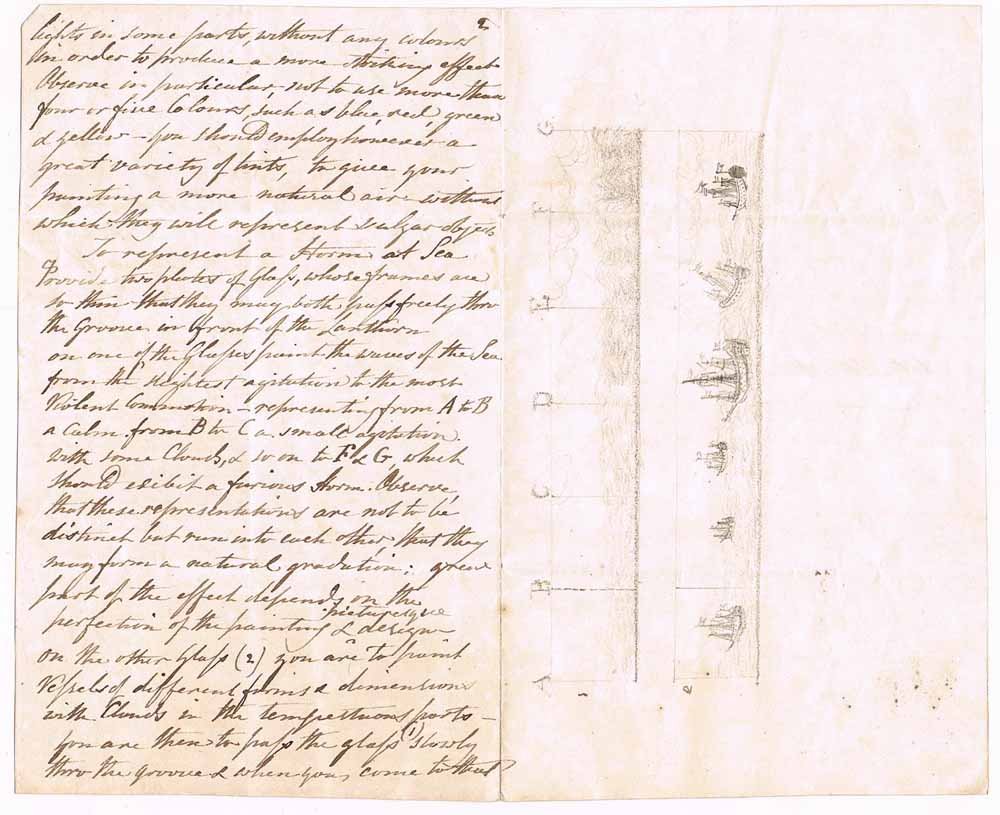 2
lights in some parts, without any colours
in order to produce a more striking effect
Observe in particular, not to use more than
four or five Colours, such as blue red, green
& yellow – you should employ however a
great variety of tints, to give your
painting a more natural air without
which they will represent vulgar objects
To represent a Storm at Sea
Provide two plates of Glass, whose frames are
so thin that they may both pass freely thro
the Groove in front of the Lanthorn
on one of the Glasses paint the waves of the Sea
from the sleightest agitation to the most
Violent Commotion – representing from A to B
a Calm from B to C a small agitation
with some Clouds, & so on to F & G, which
should exibit a furious Storm. Observe,
that these representations are not to be
distinct but run into each other, that they
may form a natural gradution; great
part of the effect depends on the
picturesque
perfection of the painting & design –
on the other Glass (2) you are to paint
Vessels of different forms & dimensions
with Clouds in the tempestuous parts –
you are then to pass the glass (1) slowly
thro the groove & when you come to that
G
F
E
D
C
B
A
1
2